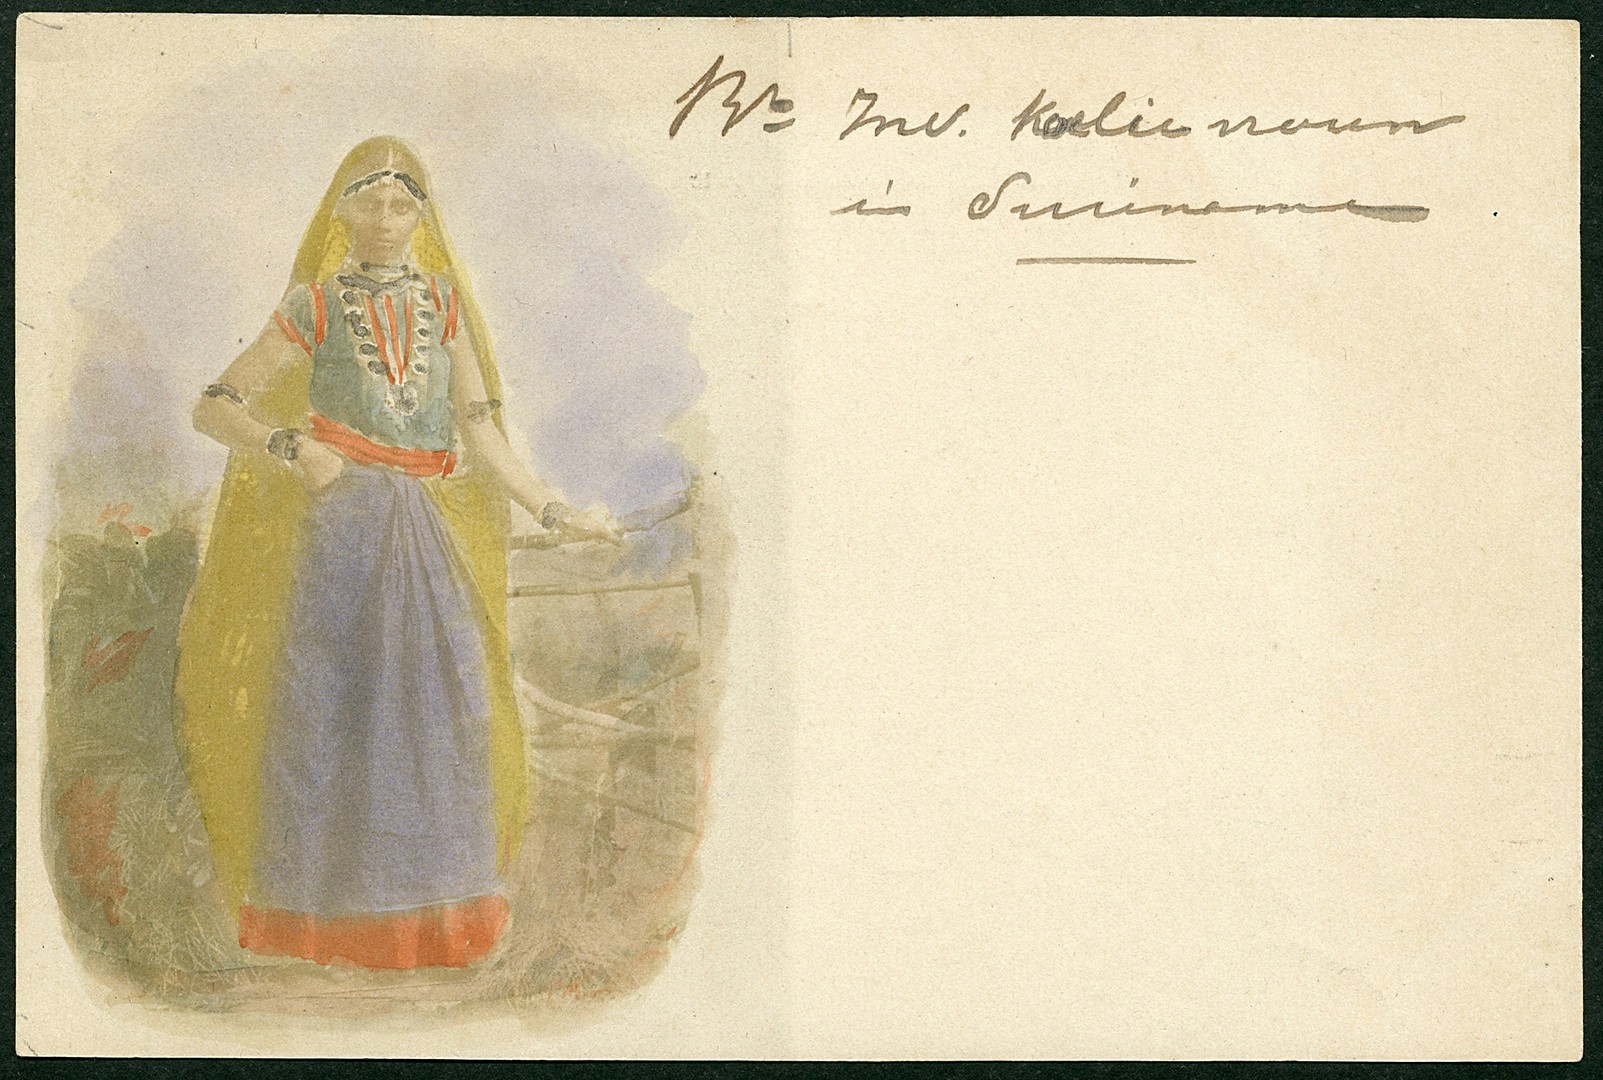 Br. Ind. Koelievrouw
in Suriname.